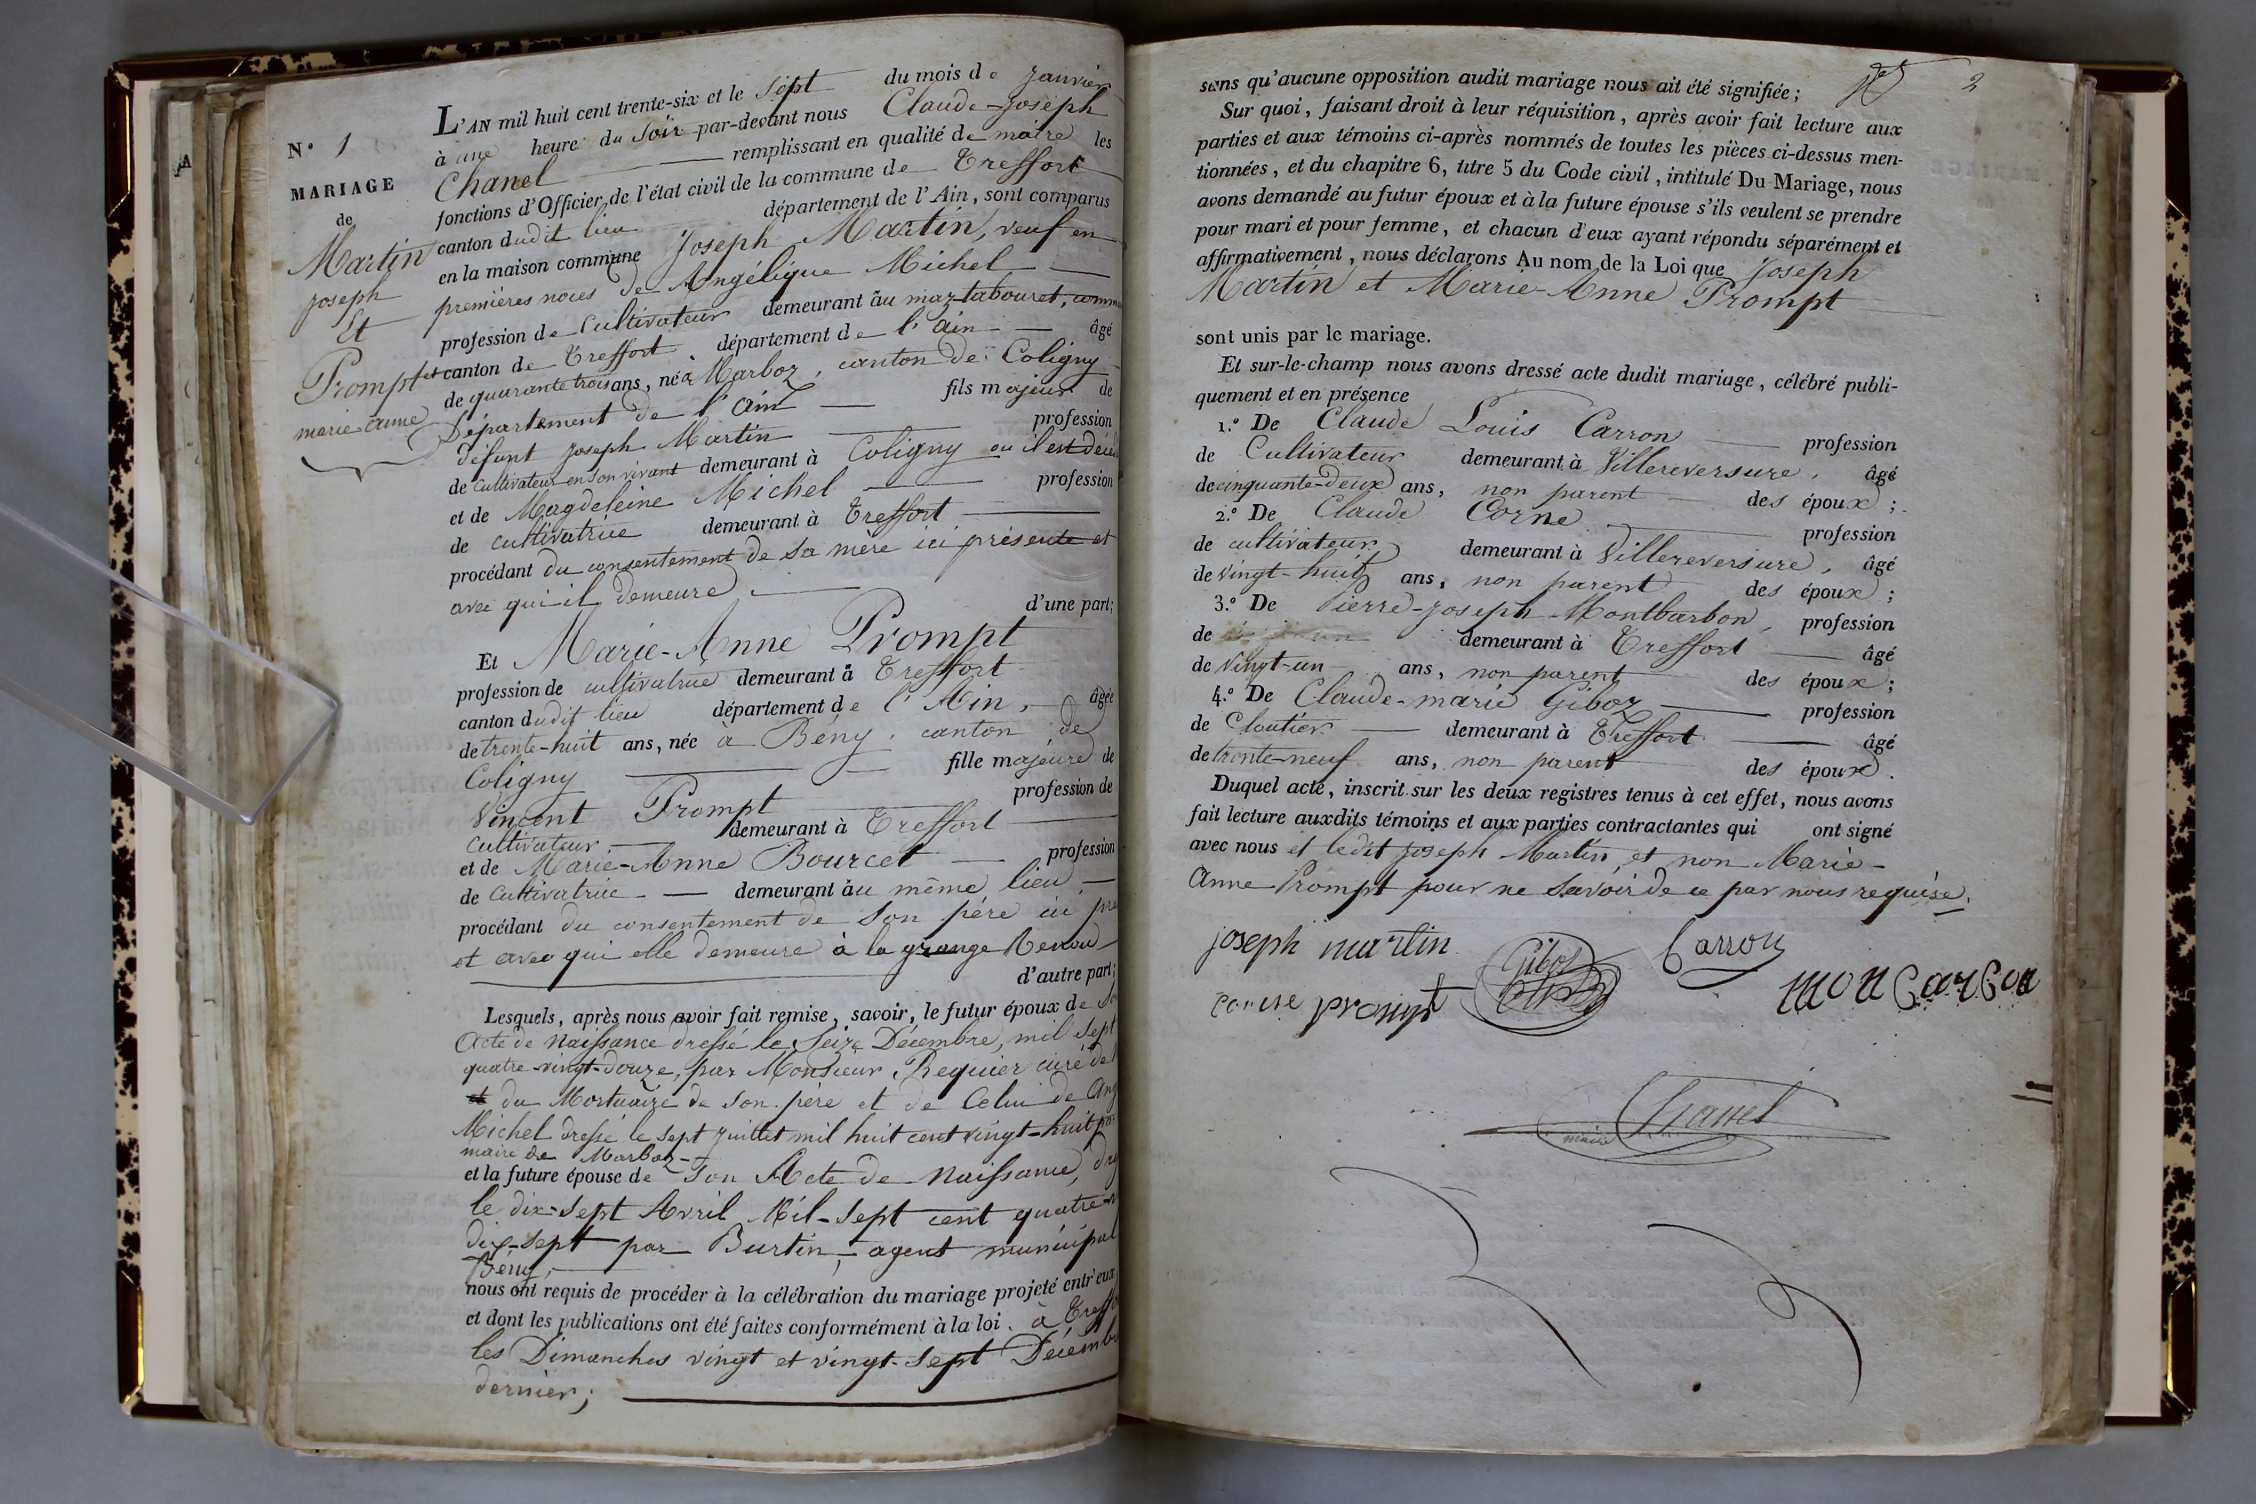 N.º 1
MARIAGE
de
Martin
joseph
Et
Prompt
marie anne
L'AN mil huit cent trente-six et le Sept du mois de janvier
à une heure du soir par-devant nous Claude-Joseph
Chanel remplissant en qualité de maire les
fonctions d'Officier de l'état civil de la commune de Treffort
canton dudit lieu département de l'Ain, sont comparus
en la maison commune Joseph Martin, veuf en
premières noces de Angélique Michel
profession de Cultivateur demeurant au maz tabouret, comm
et canton de Treffort département de l'ain âgé
de quarante trois ans, né à Marboz, canton de Coligny
Département de l'ain fils majeur de
défunt joseph Martin profession
de cultivateur en son vivant demeurant à Coligny ou il est décé
et de Magdeleine Michel profession
de cultivatrice demeurant à Treffort
procédant du consentement de sa mère ici présente et
avec qui il demeure
d'une part;
Et Marie-Anne Prompt
profession de cultivatrice demeurant à Treffort
canton dudit lieu département de l'Ain, âgée
de trente-huit ans, née à Bény, canton de
Coligny fille majeure de
Vincent Prompt profession de
Cultivateur demeurant à Treffort
et de Marie-Anne Bourcet profession
de Cultivatrice demeurant au même lieu,
procédant du consentement de son père ici pre
et avec qui elle demeure à la grange
d'autre part;
Lesquels, après nous avoir fait remise, savoir, le futur époux de so
Acte de naissance dressé le Seize Décembre, mil sept
quatre-vingt-douze, par Monsieur Requier curé de
du Mortuaire de son père et de Celui de Ang
Michel dressé le sept juillet mil huit cent vingt-huit p
maire de Marboz
et la future épouse de son Acte de Naissance, dre
le dix-sept Avril Mil-sept cent quatre-v
dix-sept par Burtin, agent municipal
Bény,
nous ont requis de procéder à la célébration du mariage projeté entr'eux
et dont les publications ont été faites conformément à la loi. à Treffo
les Dimanches vingt et vingt-sept Décemb
dernier;
2
sans qu'aucune opposition audit mariage nous ait été signifiée;
Sur quoi, faisant droit à leur réquisition, après avoir fait lecture aux
parties et aux témoins ci-après nommés de toutes les pièces ci-dessus men-
tionnées, et du chapitre 6, titre 5 du Code civil, intitulé Du Mariage, nous
avons demandé au futur époux et à la future épouse s'ils veulent se prendre
pour mari et pour femme, et chacun d'eux ayant répondu séparément et
affirmativement, nous déclarons Au nom de la Loi que Joseph
Martin et Marie-Anne Prompt
sont unis par le mariage.
Et sur-le-champ nous avons dressé acte dudit mariage, célébré publi-
quement et en présence
1.º De Claude Louis Carron profession
de Cultivateur demeurant à Villereversure, âgé
de cinquante-deux ans, non parent des époux;
2.º De Claude Corne profession
de cultivateur demeurant à Villereversure, âgé
de vingt-huit ans, non parent des époux;
3.º De Pierre-joseph Montbarbon, profession
de demeurant à Treffort âgé
de vingt-un ans, non parent des époux;
4.º De Claude-marie Giboz profession
de Cloutier demeurant à Treffort âgé
de trente-neuf ans, non parent des époux.
Duquel acte, inscrit sur les deux registres tenus à cet effet, nous avons
fait lecture auxdits témoins et aux parties contractantes qui ont signé
avec nous et ledit joseph Martin, et non Marie-
Anne Prompt pour ne savoir de ce par nous requise.
joseph martin
Giboz
Carron
moncarbon
prompt
Chanel
maire